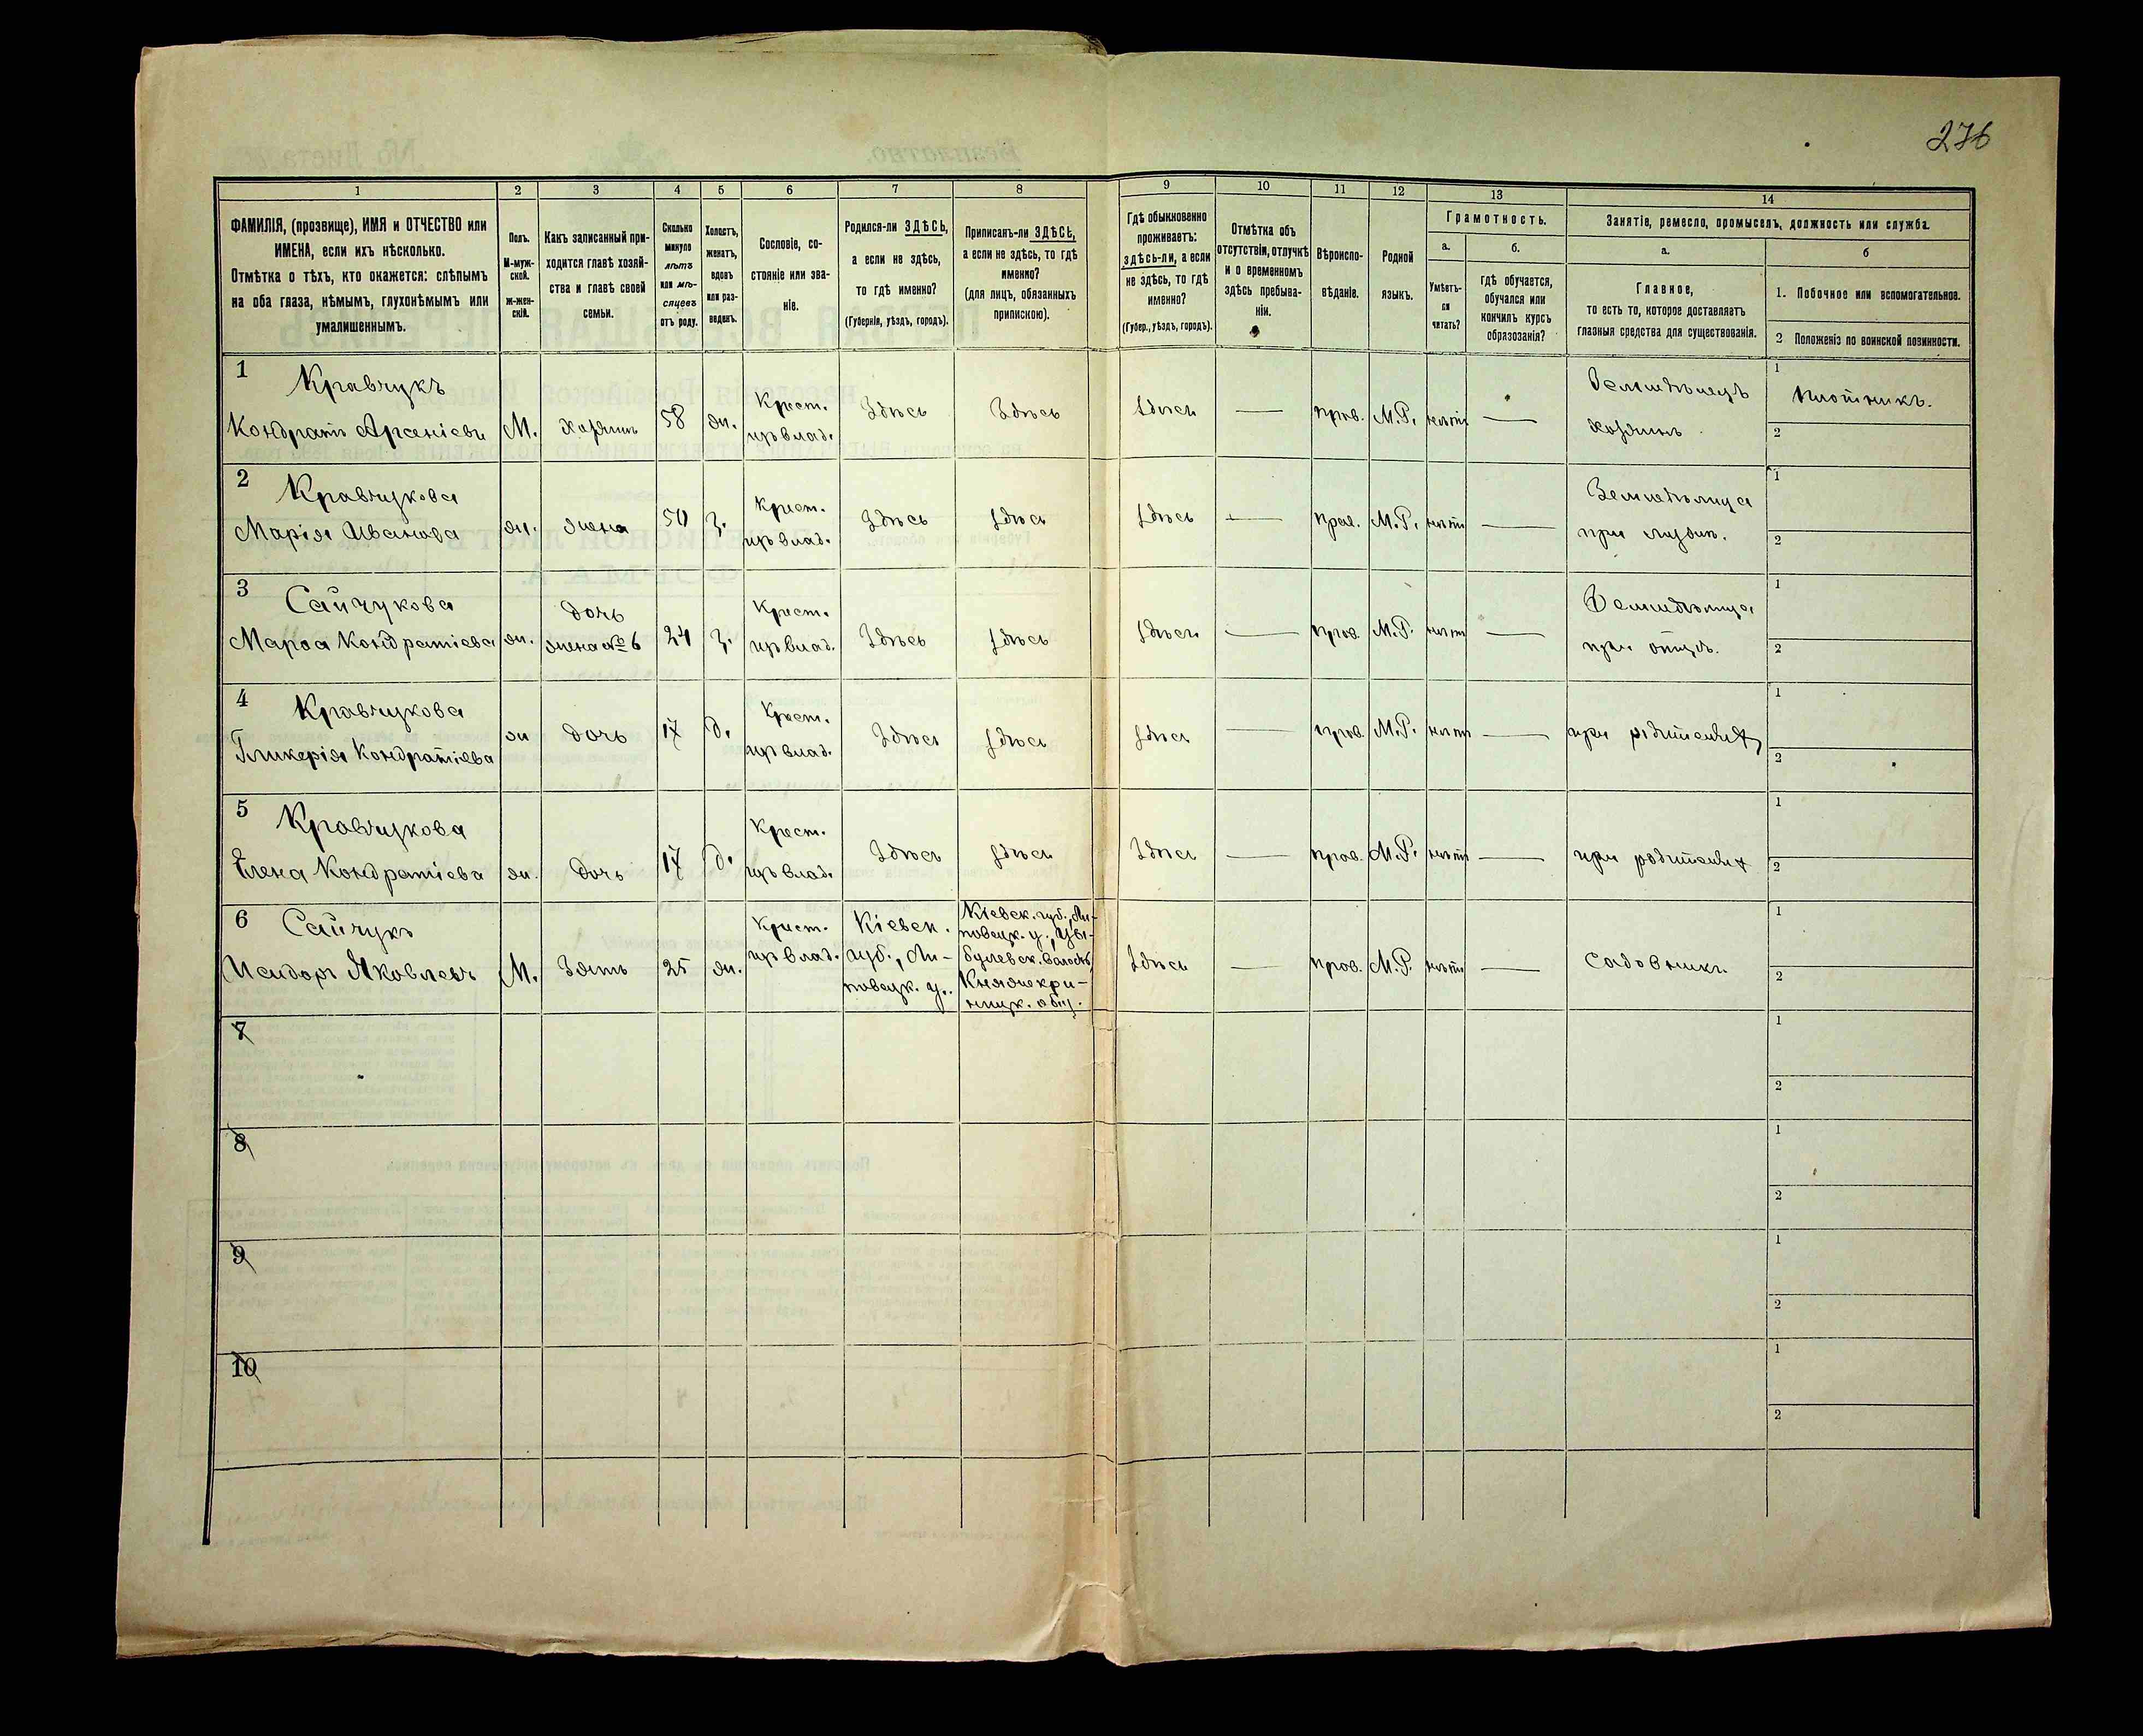 276
1 2 3 4 5 6 7 8 9 10 11 12 13 14
ФАМИЛІЯ, (прозвище), ИМЯ и ОТЧЕСТВО или
ИМЕНА, если ихъ нѣсколько.
Отмѣтка о тѣхъ, кто окажется: слѣпымъ
на оба глаза, нѣмымъ, глухонѣмымъ или
умалишеннымъ.
Полъ.
М-муж-
ской.
ж-жен-
скій.
Какъ записанный при-
ходится главѣ хозяй-
ства и главѣ своей
семьи.
Сколько
минуло
лѣтъ
или мѣ-
сяцевъ
отъ роду.
Холостъ,
женатъ,
вдовъ
или раз-
веденъ.
Сословіе, со-
стояніе или зва-
ніе.
Родился-ли ЗДѢСЬ,
а если не здѣсь,
то гдѣ именно?
(Губернія, уѣздъ, городъ).
Приписанъ-ли ЗДѢСЬ,
а если не здѣсь, то гдѣ
именно?
(для лицъ, обязанныхъ
припискою).
Гдѣ обыкновенно
проживаетъ:
здѣсь-ли, а если
не здѣсь, то гдѣ
именно?
(Губер., уѣздъ, городъ).
Отмѣтка объ
отсутствіи, отлучкѣ
и о временномъ
здѣсь пребыва-
ніи.
Вѣроиспо-
вѣданіе.
Родной
языкъ.
Грамотность.
а.
Умѣетъ-
ли
читать?
б.
гдѣ обучается,
обучался или
кончилъ курсъ
образованія?
Занятіе, ремесло, промыселъ, должность или служба.
а.
Главное,
то есть то, которое доставляетъ
главныя средства для существованія.
б
1. Побочное или вспомогательное.
2 Положеніе по воинской повинности.
1 Кравчукъ
Кондратъ Арсеніевъ М. хозяинъ 58 ж. Крест. изъ влад. Здѣсь Здѣсь Здѣсь — прав. М.Р. нѣтъ — Земледѣлецъ хозяинъ 1 плотникъ. 2
2 Кравчукова
Марія Иванова ж. жена 50 з. Крест. изъ влад. Здѣсь Здѣсь Здѣсь — прав. М.Р. нѣтъ — Земледѣлица при мужѣ. 1 2
3 Сайчукова
Марѳа Кондратіева ж. дочь жена № 6 24 з. Крест. изъ влад. Здѣсь Здѣсь Здѣсь — прав. М.Р. нѣтъ — Земледѣлица при отцѣ. 1 2
4 Кравчукова
Гликерія Кондратіева ж дочь 17 д. Крест. изъ влад. Здѣсь Здѣсь Здѣсь — прав. М.Р. нѣтъ — при родителяхъ 1 2
5 Кравчукова
Елена Кондратіева ж. дочь 17 д. Крест. изъ влад. Здѣсь Здѣсь Здѣсь — прав. М.Р. нѣтъ — при родителях 1 2
6 Сайчукъ
Исидоръ Яковлевъ М. Зять 25 ж. Крест. изъ влад. Кіевск. губ., Ли-повецк. у. Кіевск. губ., Ли-повецк. у., Цы-булевск. волость, Княжекри-ницк. общ. Здѣсь — прав. М.Р. нѣтъ — Садовникъ. 1 2
7 1 2
8 1 2
9 1 2
10 1 2